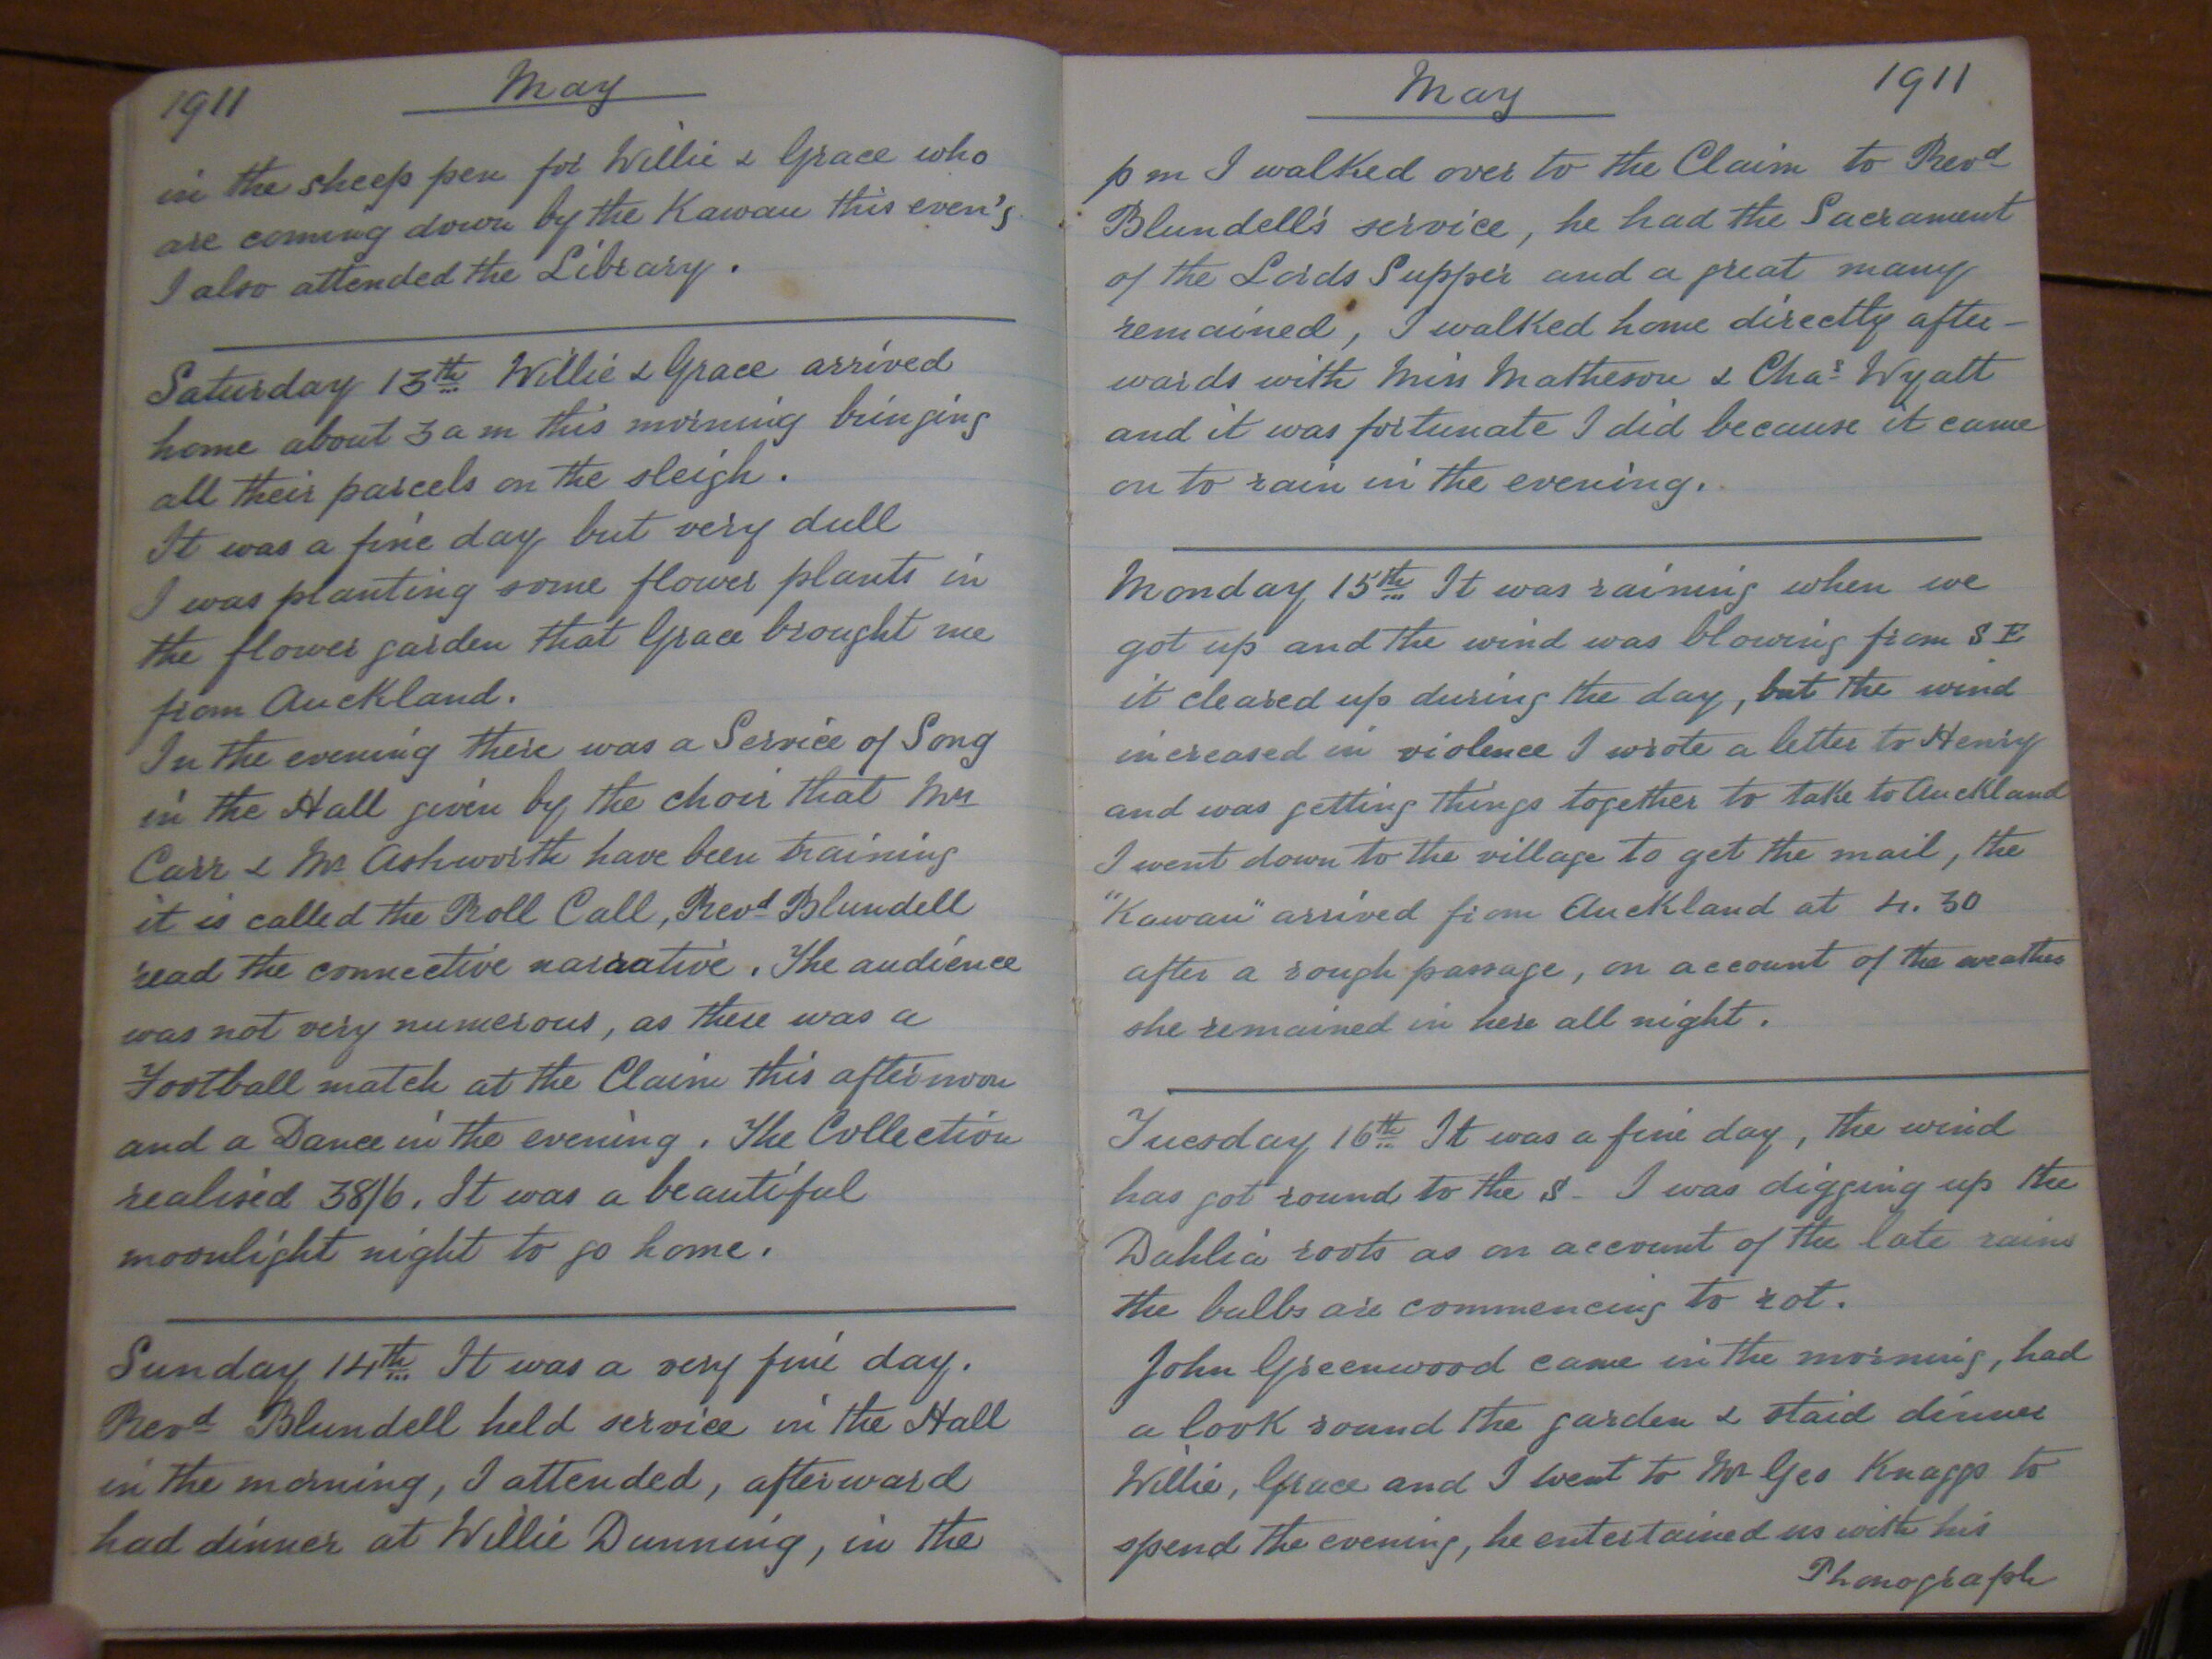 1911 May
in the sheep pen for Willie & Grace who
are coming down by the Kawau this even'g
I also attended the Library.
Saturday 13th Willie & Grace arrived
home about 3 am this morning bringing
all their parcels on the sleigh.
It was a fine day but very dull
I was planting some flower plants in
the flower garden that Grace brought me
from Auckland.
In the evening there was a Service of Song
in the Hall given by the choir that Mrs
Carr & Mr Ashworth have been training
it is called the Roll Call, Revd Blundell
read the connective narrative. The audience
was not very numerous, as there was a
Football match at the Claim this afternoon
and a Dance in the evening. The Collection
realised 38/6. It was a beautiful
moonlight night to go home.
Sunday 14th It was a very fine day.
Revd Blundell held service in the Hall
in the morning, I attended, afterward
had dinner at Willie Dunning, in the
May 1911
pm I walked over to the Claim to Revd
Blundell's service, he had the Sacrament
of the Lords Supper and a great many
remained, I walked home directly after-
wards with Miss Matheson & Chas Wyatt
and it was fortunate I did because it came
on to rain in the evening.
Monday 15th It was raining when we
got up and the wind was blowing from S E
it cleared up during the day, but the wind
increased in violence I wrote a letter to Henry
and was getting things together to take to Auckland
I went down to the village to get the mail, the
"Kawau" arrived from Auckland at 4.30
after a rough passage, on account of the weather
she remained in here all night.
Tuesday 16th It was a fine day, the wind
has got round to the S - I was digging up the
Dahlia roots as on account of the late rains
the bulbs are commencing to rot.
John Greenwood came in the morning, had
a look round the garden & staid dinner
Willie, Grace and I went to Mr Geo Knaggs to
spend the evening, he entertained us with his
Phonograph